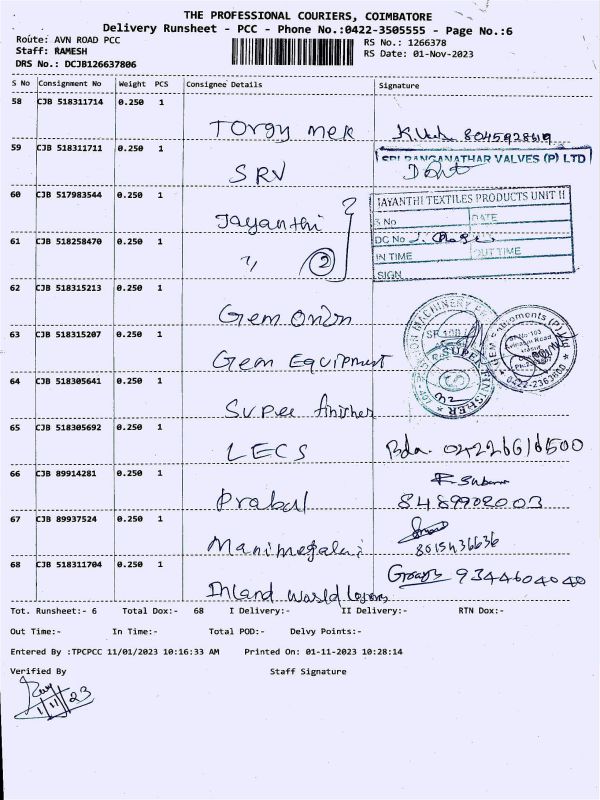 THE PROFESSIONAL COURIERS, COIMBATORE
Delivery Runsheet - PCC - Phone No.:0422-3505555 - Page No.:6
Route: AVN ROAD PCC
Staff: RAMESH
DRS No.: DCJB126637806
RS No.: 1266378
RS Date: 01-Nov-2023
S No Consignment No Weight PCS Consignee Details Signature
58 CJB 518311714 0.250 1
8045928619
59 CJB 518311711 0.250 1
SRI RANGANATHAR VALVES (P) LTD
SRV
60 CJB 517983544 0.250 1
JAYANTHI TEXTILES PRODUCTS UNIT II
S No DATE
Jayanthi
61 CJB 518258470 0.250 1
DC No
IN TIME OUT TIME
2
SIGN
62 CJB 518315213 0.250 1
Gem Orion
63 CJB 518315207 0.250 1
Gem Equipment
64 CJB 518305641 0.250 1
SUPER FINISHER
0422-2363800
Super finisher
65 CJB 518305692 0.250 1
LECS 04226616500
66 CJB 89914281 0.250 1
Prabal 8489902003
67 CJB 89937524 0.250 1
Manimegalai 8015436636
68 CJB 518311704 0.250 1
9344604040
Inland World
Tot. Runsheet:- 6 Total Dox:- 68 I Delivery:- II Delivery:- RTN Dox:-
Out Time:- In Time:- Total POD:- Delvy Points:-
Entered By :TPCPCC 11/01/2023 10:16:33 AM Printed On: 01-11-2023 10:28:14
Verified By Staff Signature
1/11/23